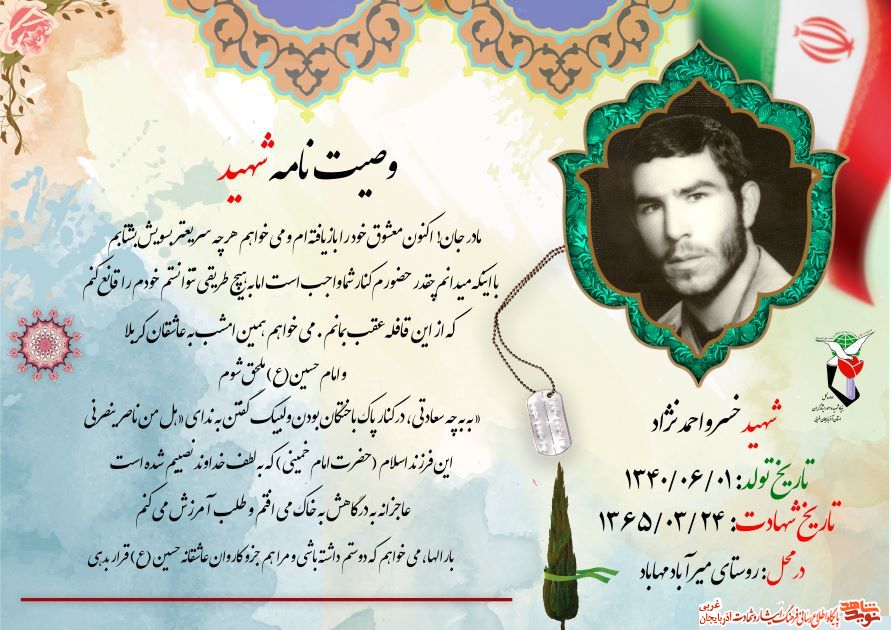 وصیت نامه شهید
مادر جان! اکنون معشوق خود را بازیافته ام و می خواهم هر چه سریعتر بسویش بشتابم
با اینکه میدانم چقدر حضورم کنار شما واجب است اما به هیچ طریقی نتوانستم خودم را قانع کنم
که از این قافله عقب بمانم . می خواهم همین امشب به عاشقان کربلا
و امام حسین (ع) ملحق شوم
«به به چه سعادتی، در کنار پاک باختگان بودن و لبیک گفتن به ندای «هل من ناصر ینصرنی
این فرزند اسلام (حضرت امام خمینی) که به لطف خداوند نصیبم شده است
عاجزانه به درگاهش به خاک می افتم و طلب آمرزش می کنم
بار الها، می خواهم که دوستم داشته باشی و مرا هم جزو کاروان عاشقانه حسین (ع) قرار بدهی
شهید خسرو احمد نژاد
تاریخ تولد: ۱۳۴۰/۰۶/۰۱
تاریخ شهادت: ۱۳۶۵/۰۳/۲۴
در محل: روستای میرآباد مهاباد
نوید شاهد
پایگاه اطلاع رسانی فرهنگ ایثار و شهادت آذربایجان غربی